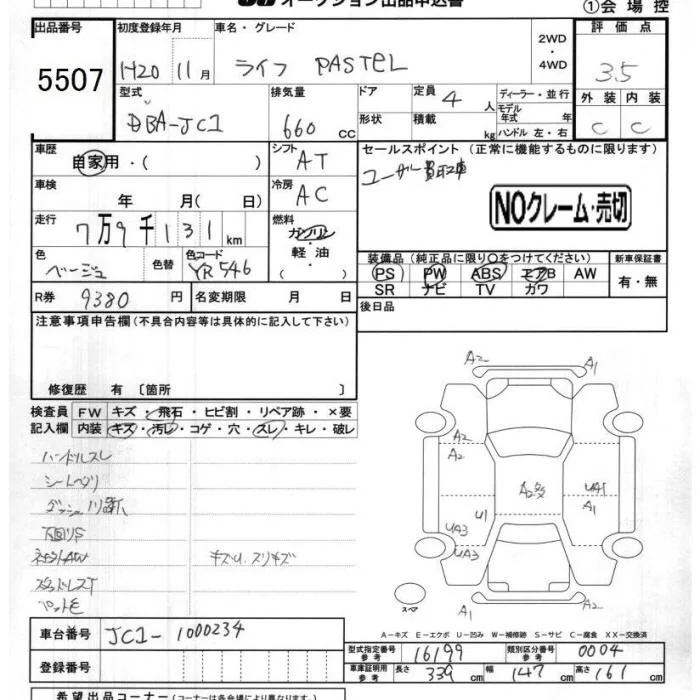 オークション出品申込書
①会場控
出品番号 初度登録年月 車名・グレード 評価点
5507 H20 11月 ライフ PASTEL 2WD・4WD 3.5
型式 排気量 ドア 定員 4 人 ディーラー・並行 外装 内装
DBA-JC1 660 CC 形状 積載 kg モデル年式 年 ハンドル 左・右 C C
車歴 自家用・( ) シフト AT セールスポイント (正常に機能するものに限ります)
ユーザー買取車
車検 年 月( 日) 冷房 AC
NOクレーム・売切
走行 7万9千131km 燃料 ガソリン・軽油・( )
色 ベージュ 色替 色コード YR546
装備品(純正品に限り○をつけてください) 新車保証書
PS PW ABS エアB AW 有・無
SR ナビ TV カワ
R券 9380 円 名変期限 月 日
後日品
注意事項申告欄(不具合内容等は具体的に記入して下さい)
修復歴 有〔箇所 〕
検査員記入欄 FW キズ・飛石・ヒビ割・リペア跡・×要
内装 キズ・汚レ・コゲ・穴・スレ・キレ・破レ
ハンドルスレ
シートヘタリ
下回りS
キズU.スリキズ
A2 A1
A2
A2
A2多
UA1
A1
U1
UA3
UA3
スペア
A1 A2
A-キズ E-エクボ U-凹み W-補修跡 S-サビ C-腐食 XX-交換済
車台番号 JC1-1000234
登録番号
型式指定番号 参考 16199 類別区分番号 参考 0004
車庫証明用 参考 長さ 339cm 幅 147cm 高さ 161cm
希望出品コーナー(コーナーは各会場により異なります)